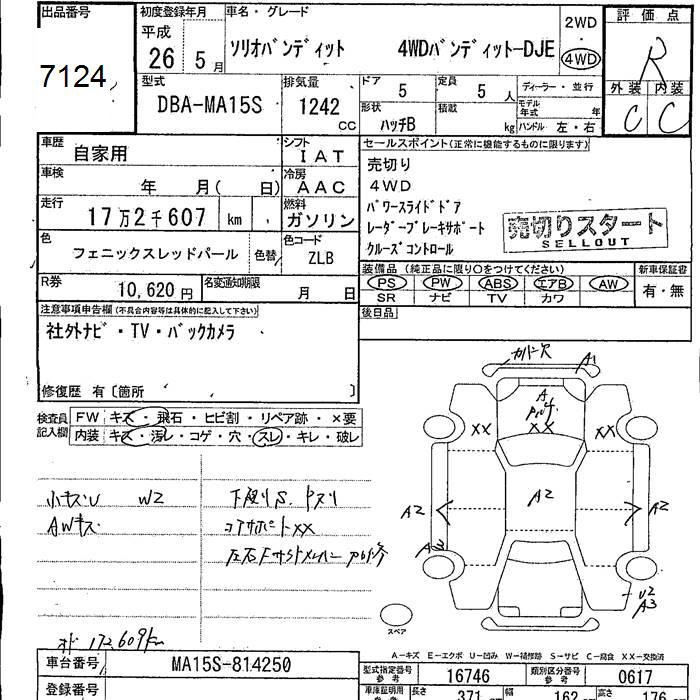 出品番号
7124
初度登録年月
平成
26 5月
車名・グレード
ソリオバンディット 4WDバンディットーDJE
2WD
4WD
評価点
R
外装 内装
C C
型式
DBA-MA15S
排気量
1242
CC
ドア
5
定員
5人
ディーラー・並行
モデル年式 年
形状
ハッチB
積載
kg
ハンドル 左・右
車歴
自家用
シフト
IAT
車検
年 月( 日)
冷房
AAC
走行
17万2千607 km
燃料
ガソリン
色
フェニックスレッドパール
色替
色コード
ZLB
R券
10,620円
名変通知期限
月 日
セールスポイント(正常に機能するものに限ります)
売切り
4WD
パワースライドドア
レーダーブレーキサポート
クルーズコントロール
売切りスタート
SELLOUT
装備品(純正品に限り○をつけてください)
PS PW ABS エアB AW
SR ナビ TV カワ
新車保証書
有・無
後日品
注意事項申告欄(不具合内容等は具体的に記入して下さい)
社外ナビ・TV・バックカメラ
修復歴 有〔箇所 〕
検査員
記入欄
FW キズ・飛石・ヒビ割・リペア跡・×要
内装 キズ・汚レ・コゲ・穴・スレ・キレ・破レ
小キズU W2
AWキズ
下廻りS.
コアサポートXX
172609km
カバー欠
A1
A
XX
XX
XX
A2
A2
A2
U2
A3
スペア
A-キズ E-エクボ U-凹み W-補修跡 S-サビ C-腐食 XX-交換済
車台番号
MA15S-814250
登録番号
型式指定番号
参考
16746
類別区分番号
参考
0617
車庫証明用
長さ
371
幅
162
高さ
176